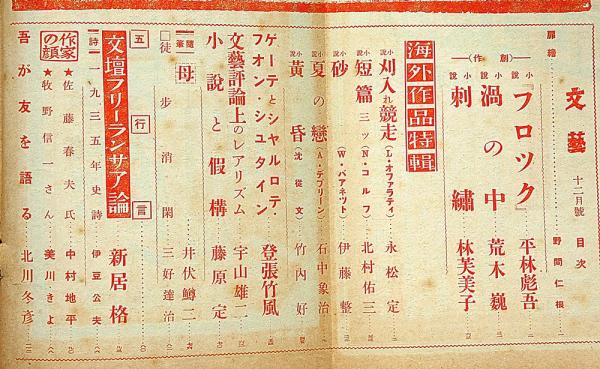 扉繪 野間仁根
文藝 十二月號 目次
(創作)
小説 『フロツク』 平林彪吾
小説 渦の中 荒木巍
小説 刺繡 林芙美子
海外作品特輯
小説 刈入れ競走 (L・オフアラテイ) 永松定
小説 短篇三ツ (N・コルフ) 北村佑三
小説 砂 (W・バアネツト) 伊藤整
小説 夏の戀 (A・テフリーン) 石中象治
小説 黃昏 (沈從文) 竹内好
ゲーテとシヤルロテ・フオン・シユタイン 登張竹風
文藝評論上のレアリズム 宇山雄二
小說と假構 藤原定
隨筆 母 井伏鱒二
□徒歩消閑 三好達治
五行言
文壇フリーランサア論 新居格
【詩】一九三五年史詩 伊豆公夫
作家の顔
★佐藤春夫氏 中村地平
★牧野信一さん 美川きよ
吾が友を語る 北川冬彦